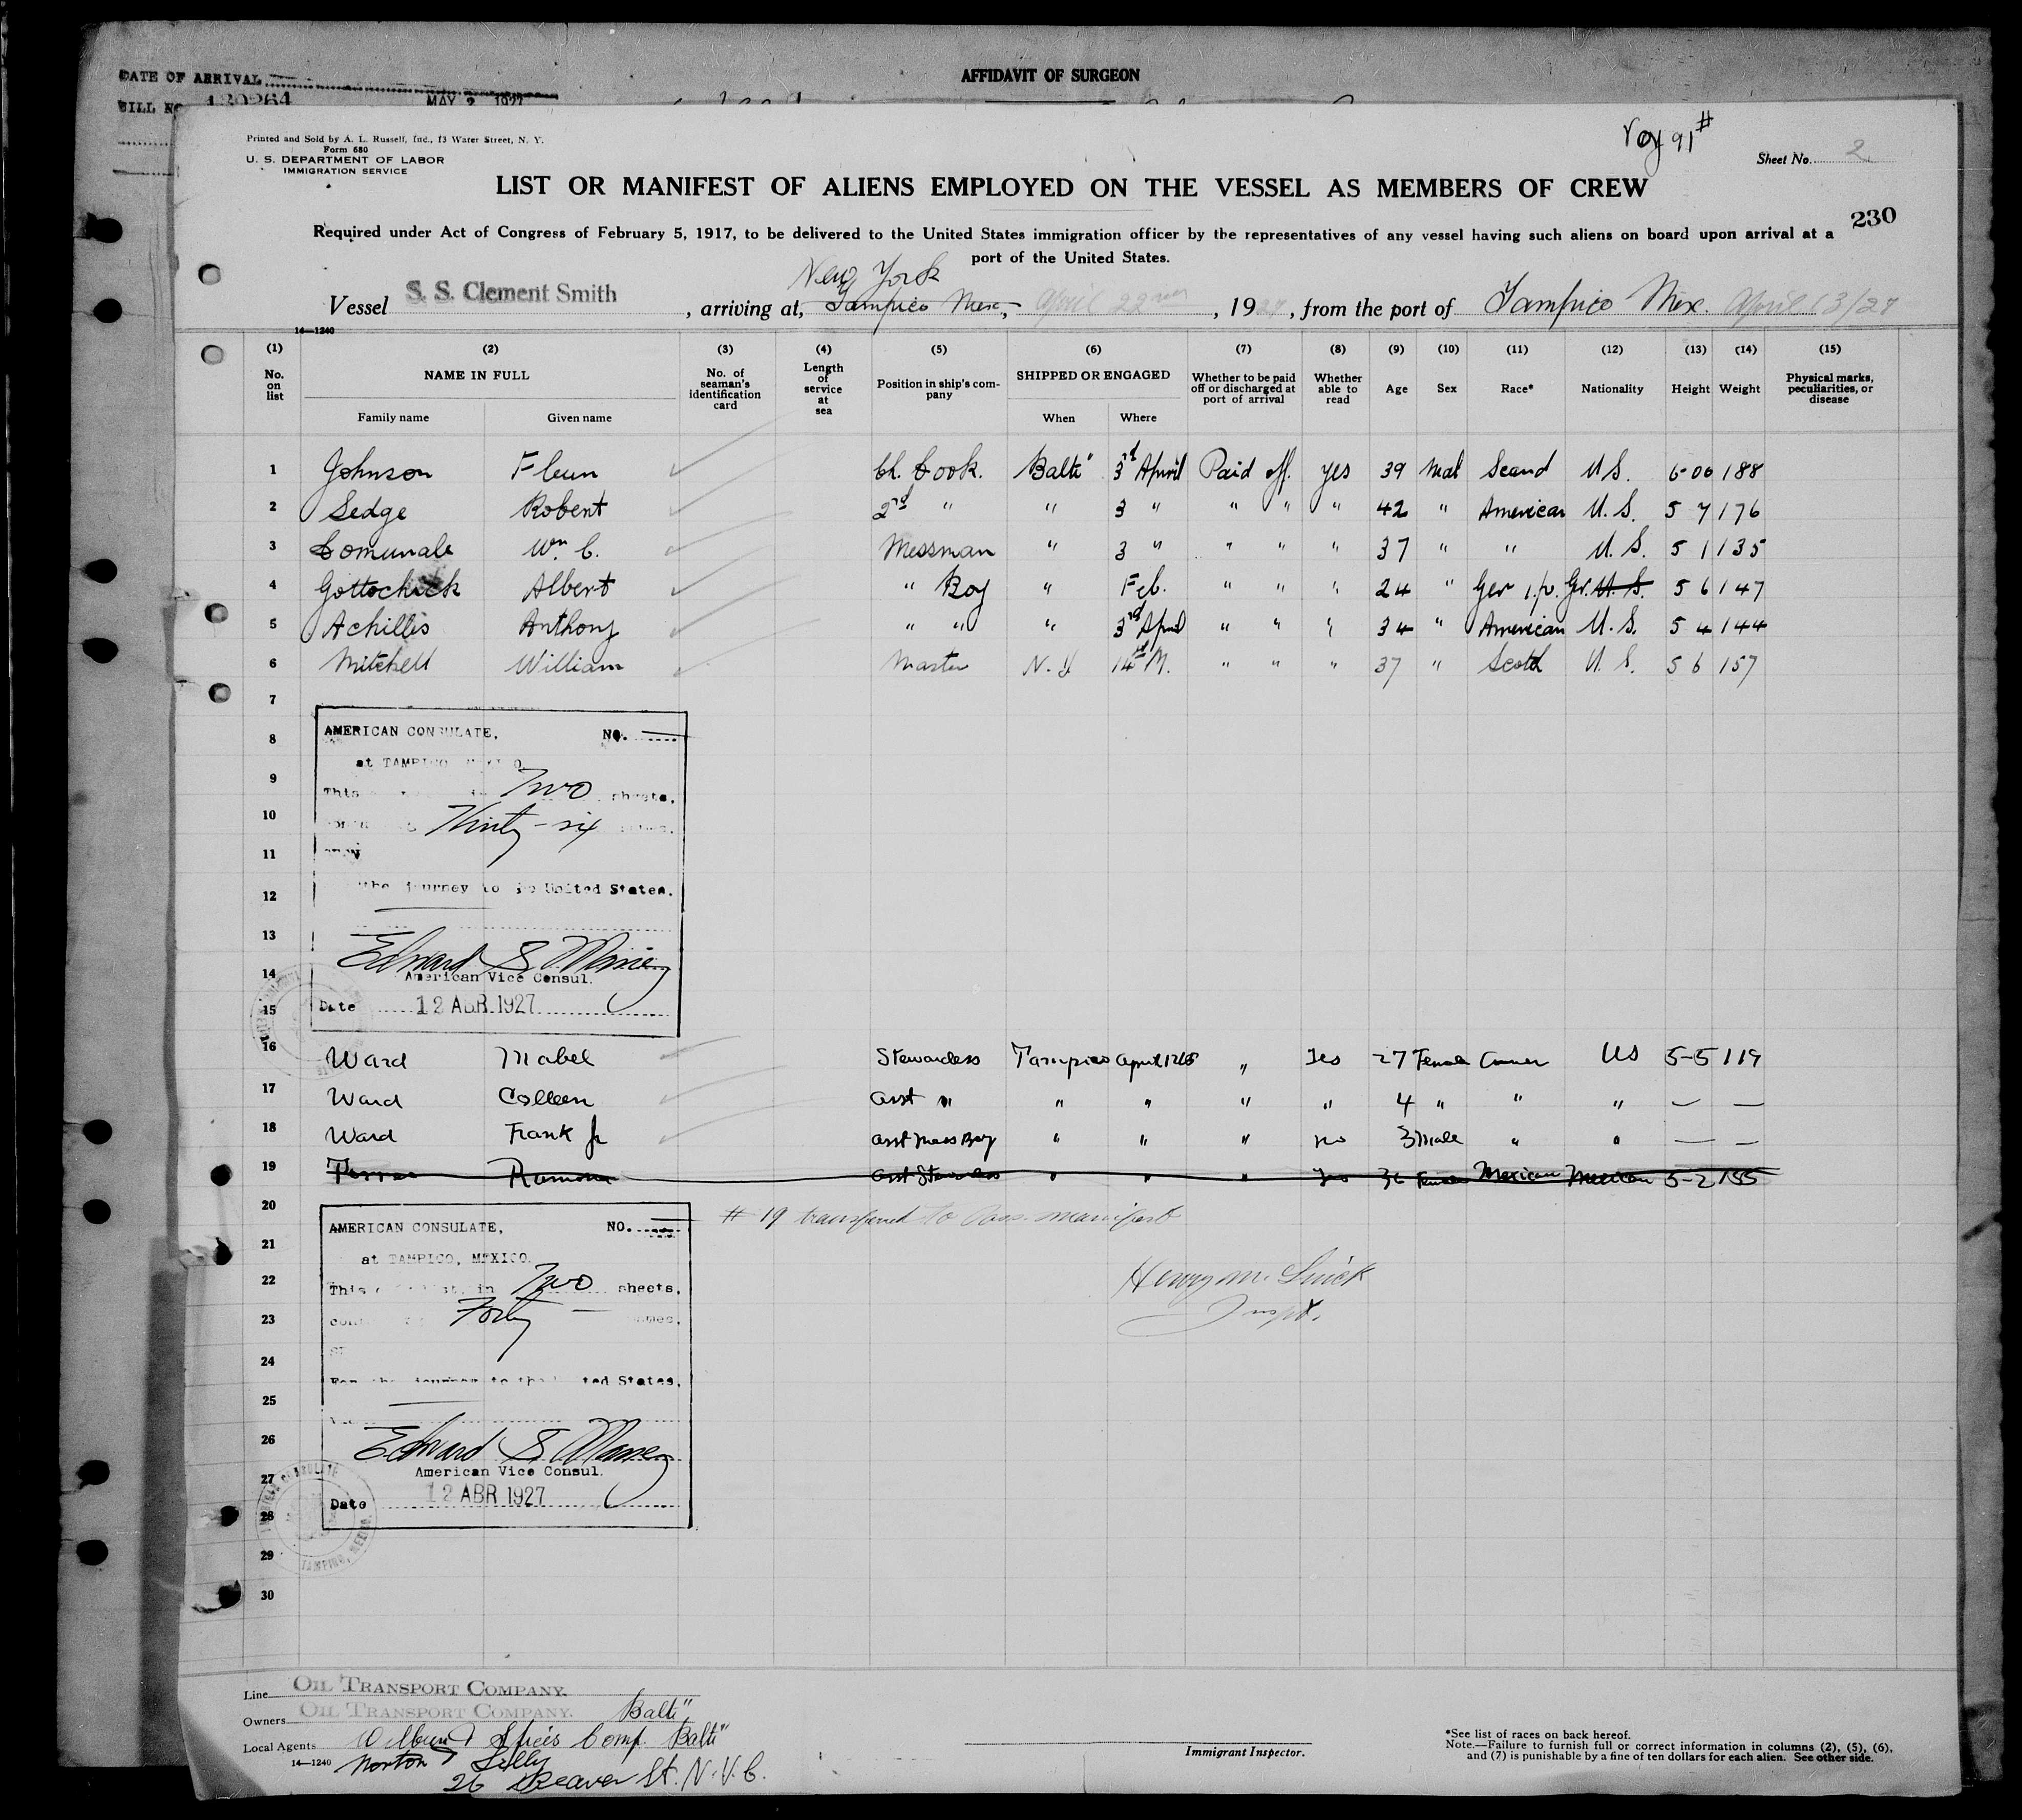 DATE OF ARRIVAL
AFFIDAVIT OF SURGEON
BILL NO. 130264 MAY 2 1927
Voy 91#
Printed and Sold by A. L. Russell, Inc., 13 Water Street, N. Y.
Form 680
U. S. DEPARTMENT OF LABOR
IMMIGRATION SERVICE
Sheet No. 2
LIST OR MANIFEST OF ALIENS EMPLOYED ON THE VESSEL AS MEMBERS OF CREW
230
Required under Act of Congress of February 5, 1917, to be delivered to the United States immigration officer by the representatives of any vessel having such aliens on board upon arrival at a
port of the United States.
New York
Vessel S. S. Clement Smith, arriving at, Tampico Mex, April 22, 1927, from the port of Tampico Mex. April 13/27
14-1240
(1) (2) (3) (4) (5) (6) (7) (8) (9) (10) (11) (12) (13) (14) (15)
No. on list NAME IN FULL Family name Given name No. of seaman's identification card Length of service at sea Position in ship's company SHIPPED OR ENGAGED When Where Whether to be paid off or discharged at port of arrival Whether able to read Age Sex Race* Nationality Height Weight Physical marks, peculiarities, or disease
1 Johnson Ch. Cook. Balto" 3rd April Paid off. yes 39 Mal Scand U S. 6-00 188
2 Sedge Robert 2nd " " 3 " " " " 42 " American U. S. 5 7 176
3 Comunale Wm C. Messman " 3 " " " " 37 " " U. S. 5 1 135
4 Albert " Boy " Feb. " " " 24 " Ger 1.p. Gr. U. S. 5 6 147
5 Achilles Anthony " " " 3rd April " " " 34 " American U. S. 5 4 144
6 Mitchell William Master N. Y 14th M. " " " 37 " Scotch U. S. 5 6 157
7
8 AMERICAN CONSULATE, NO.
at TAMPICO MEXICO
9 This in Two sheets,
10 Thirty-six
11 crew
12 the journey to the United States.
13 Edward S. Maney
14 American Vice Consul.
15 Date 12 ABR 1927
16 Ward Mabel Stewardess Tampico April 12th " Yes 27 Female Amer US 5-5 119
17 Ward Colleen Asst " " " " " 4 " " " — —
18 Ward Frank Jr Asst Mess Boy " " " no 3 Male " " — —
19 Ramona Asst Stewardess " " " Yes 36 Female Mexican Mexican 5-2 155
20 # 19 transferred to Pass. manifest
AMERICAN CONSULATE, NO.
21 at TAMPICO, MEXICO.
22 This in Two sheets,
Henry M.
23 Forty —
Inspt.
24 For the journey to the United States,
25
26 Edward S. Maney
27 American Vice Consul.
28 Date 12 ABR 1927
TAMPICO, MEXICO
29
30
Line OIL TRANSPORT COMPANY.
Owners OIL TRANSPORT COMPANY. Balto"
Local Agents Comp. Balto"
14-1240 Norton Lilly
26 Beaver St. N. Y. C.
Immigrant Inspector.
*See list of races on back hereof.
Note.—Failure to furnish full or correct information in columns (2), (5), (6),
and (7) is punishable by a fine of ten dollars for each alien. See other side.